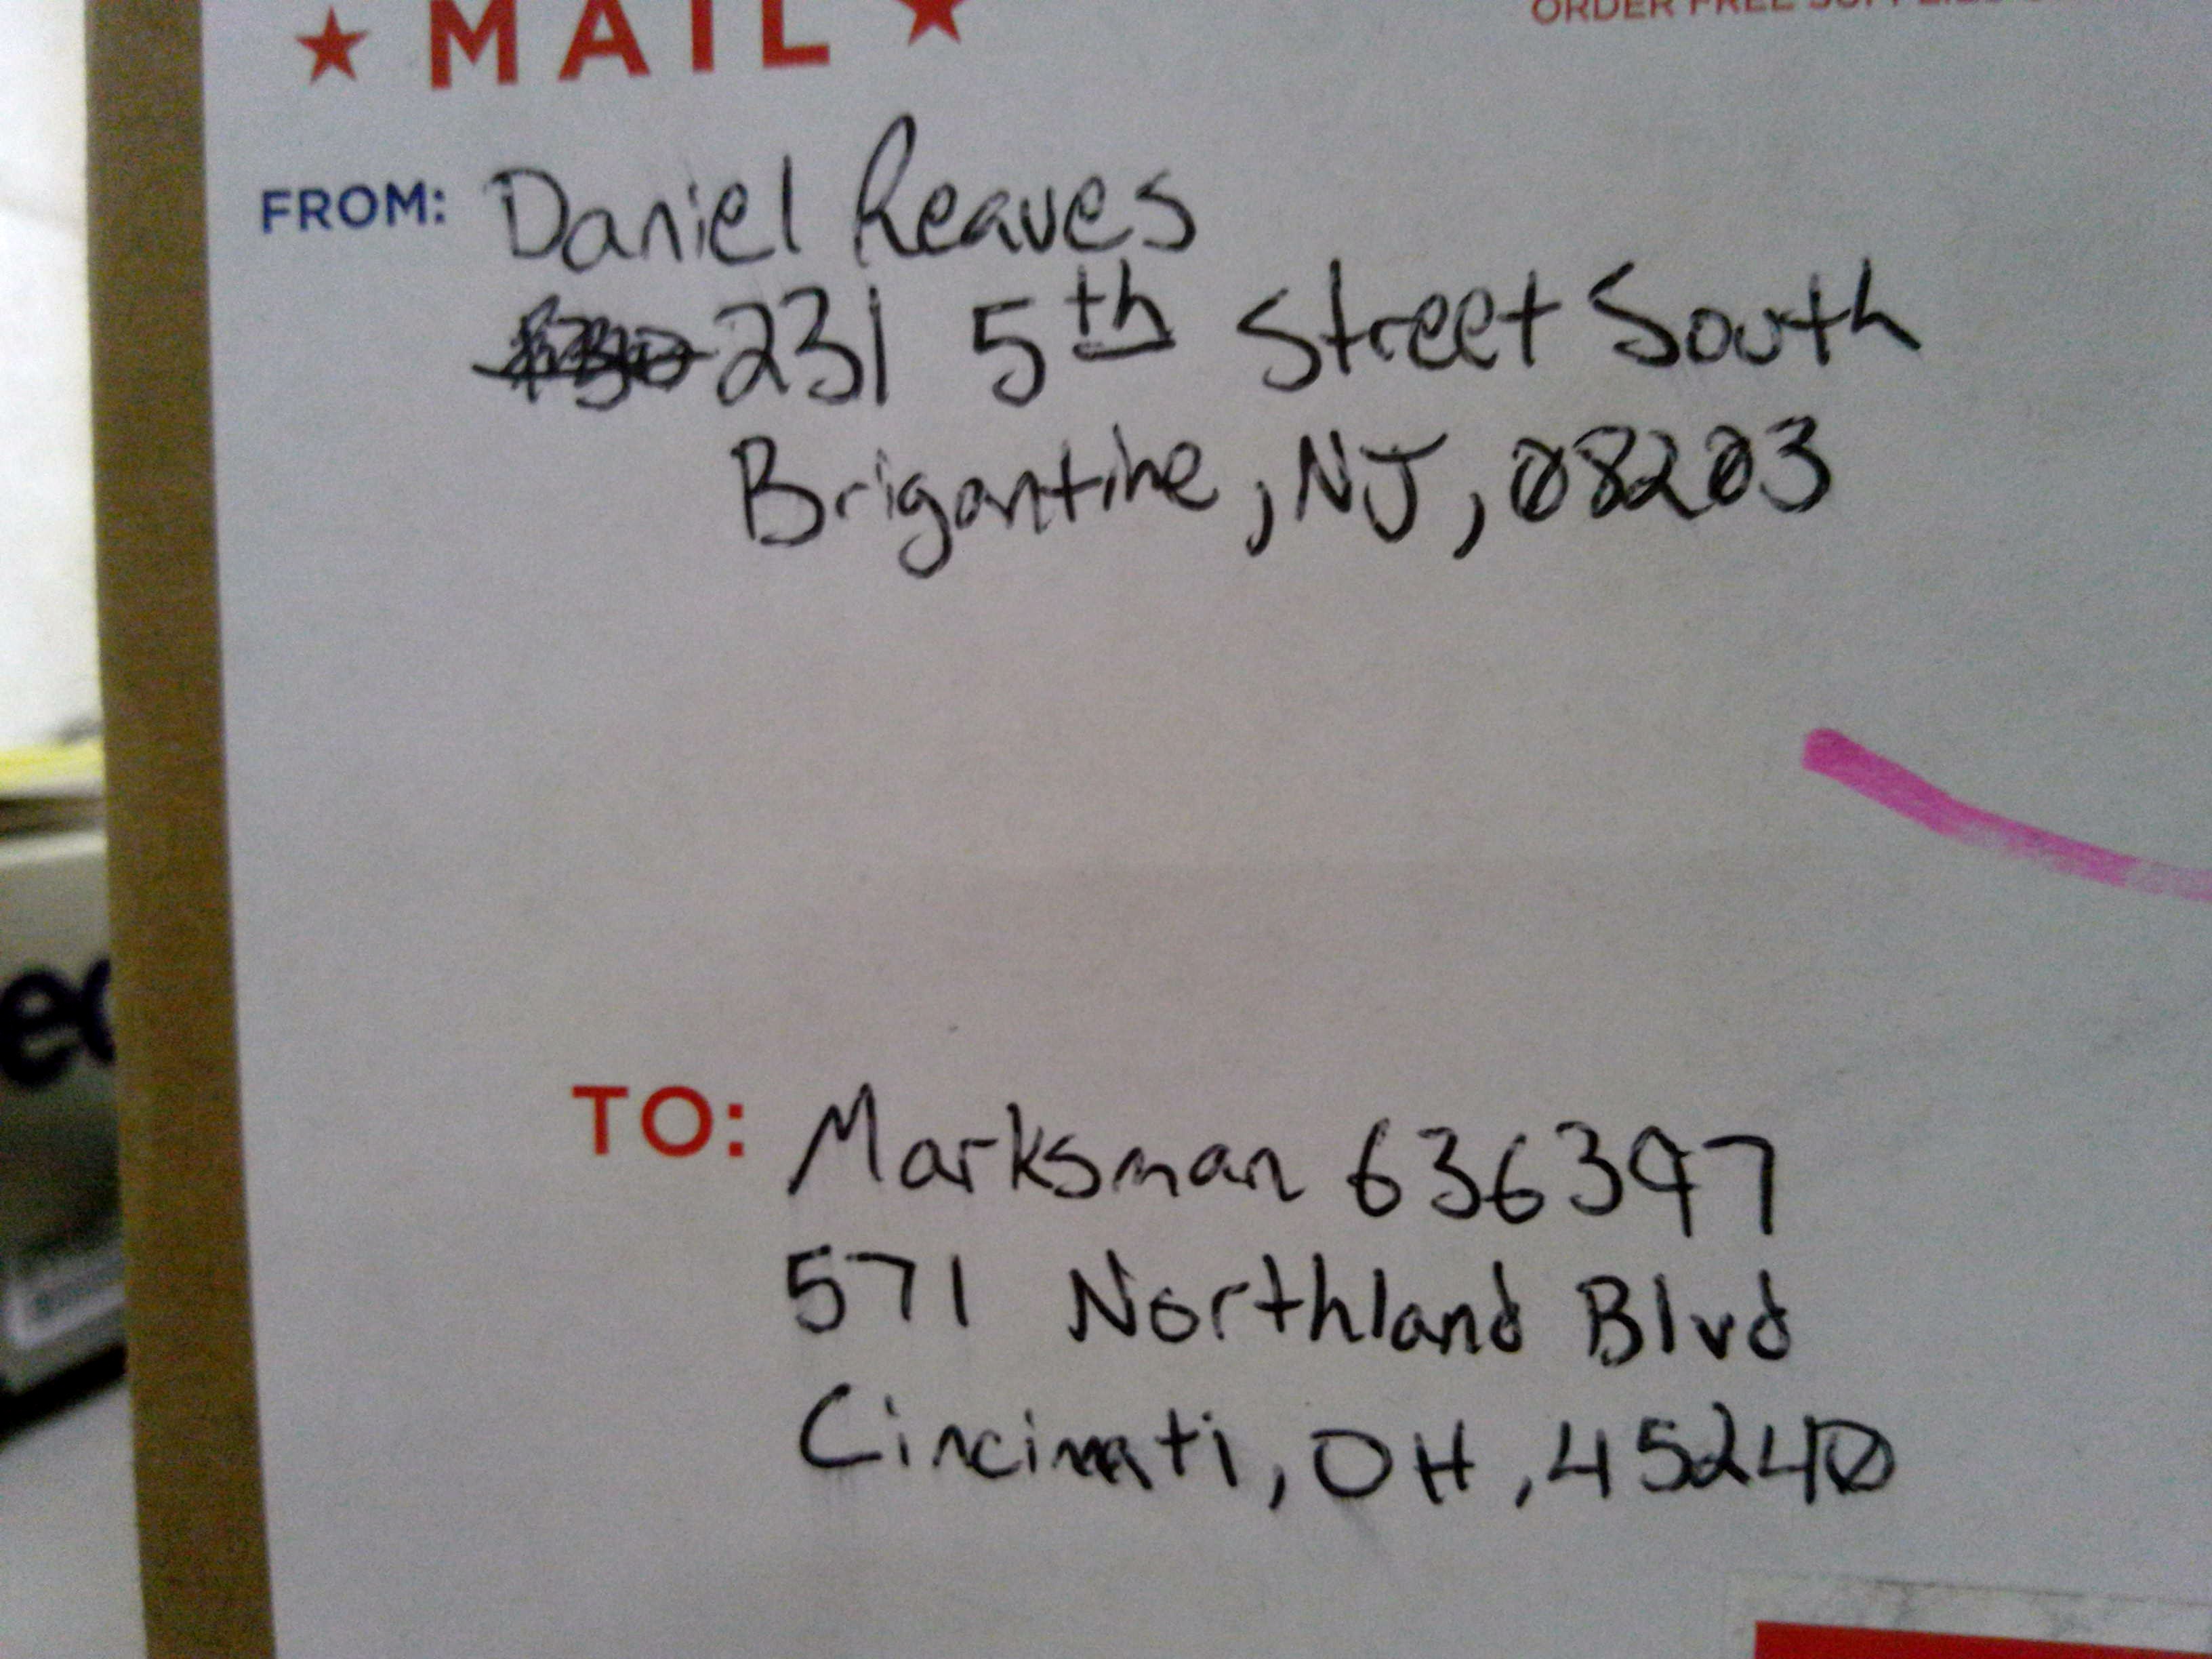 ★ MAIL ★
ORDER FREE SUPPLIES
FROM: Daniel Reaves
231 5th Street South
Brigantine, NJ, 08203
TO: Marksman 636397
571 Northland Blvd
Cincinati, OH, 45240